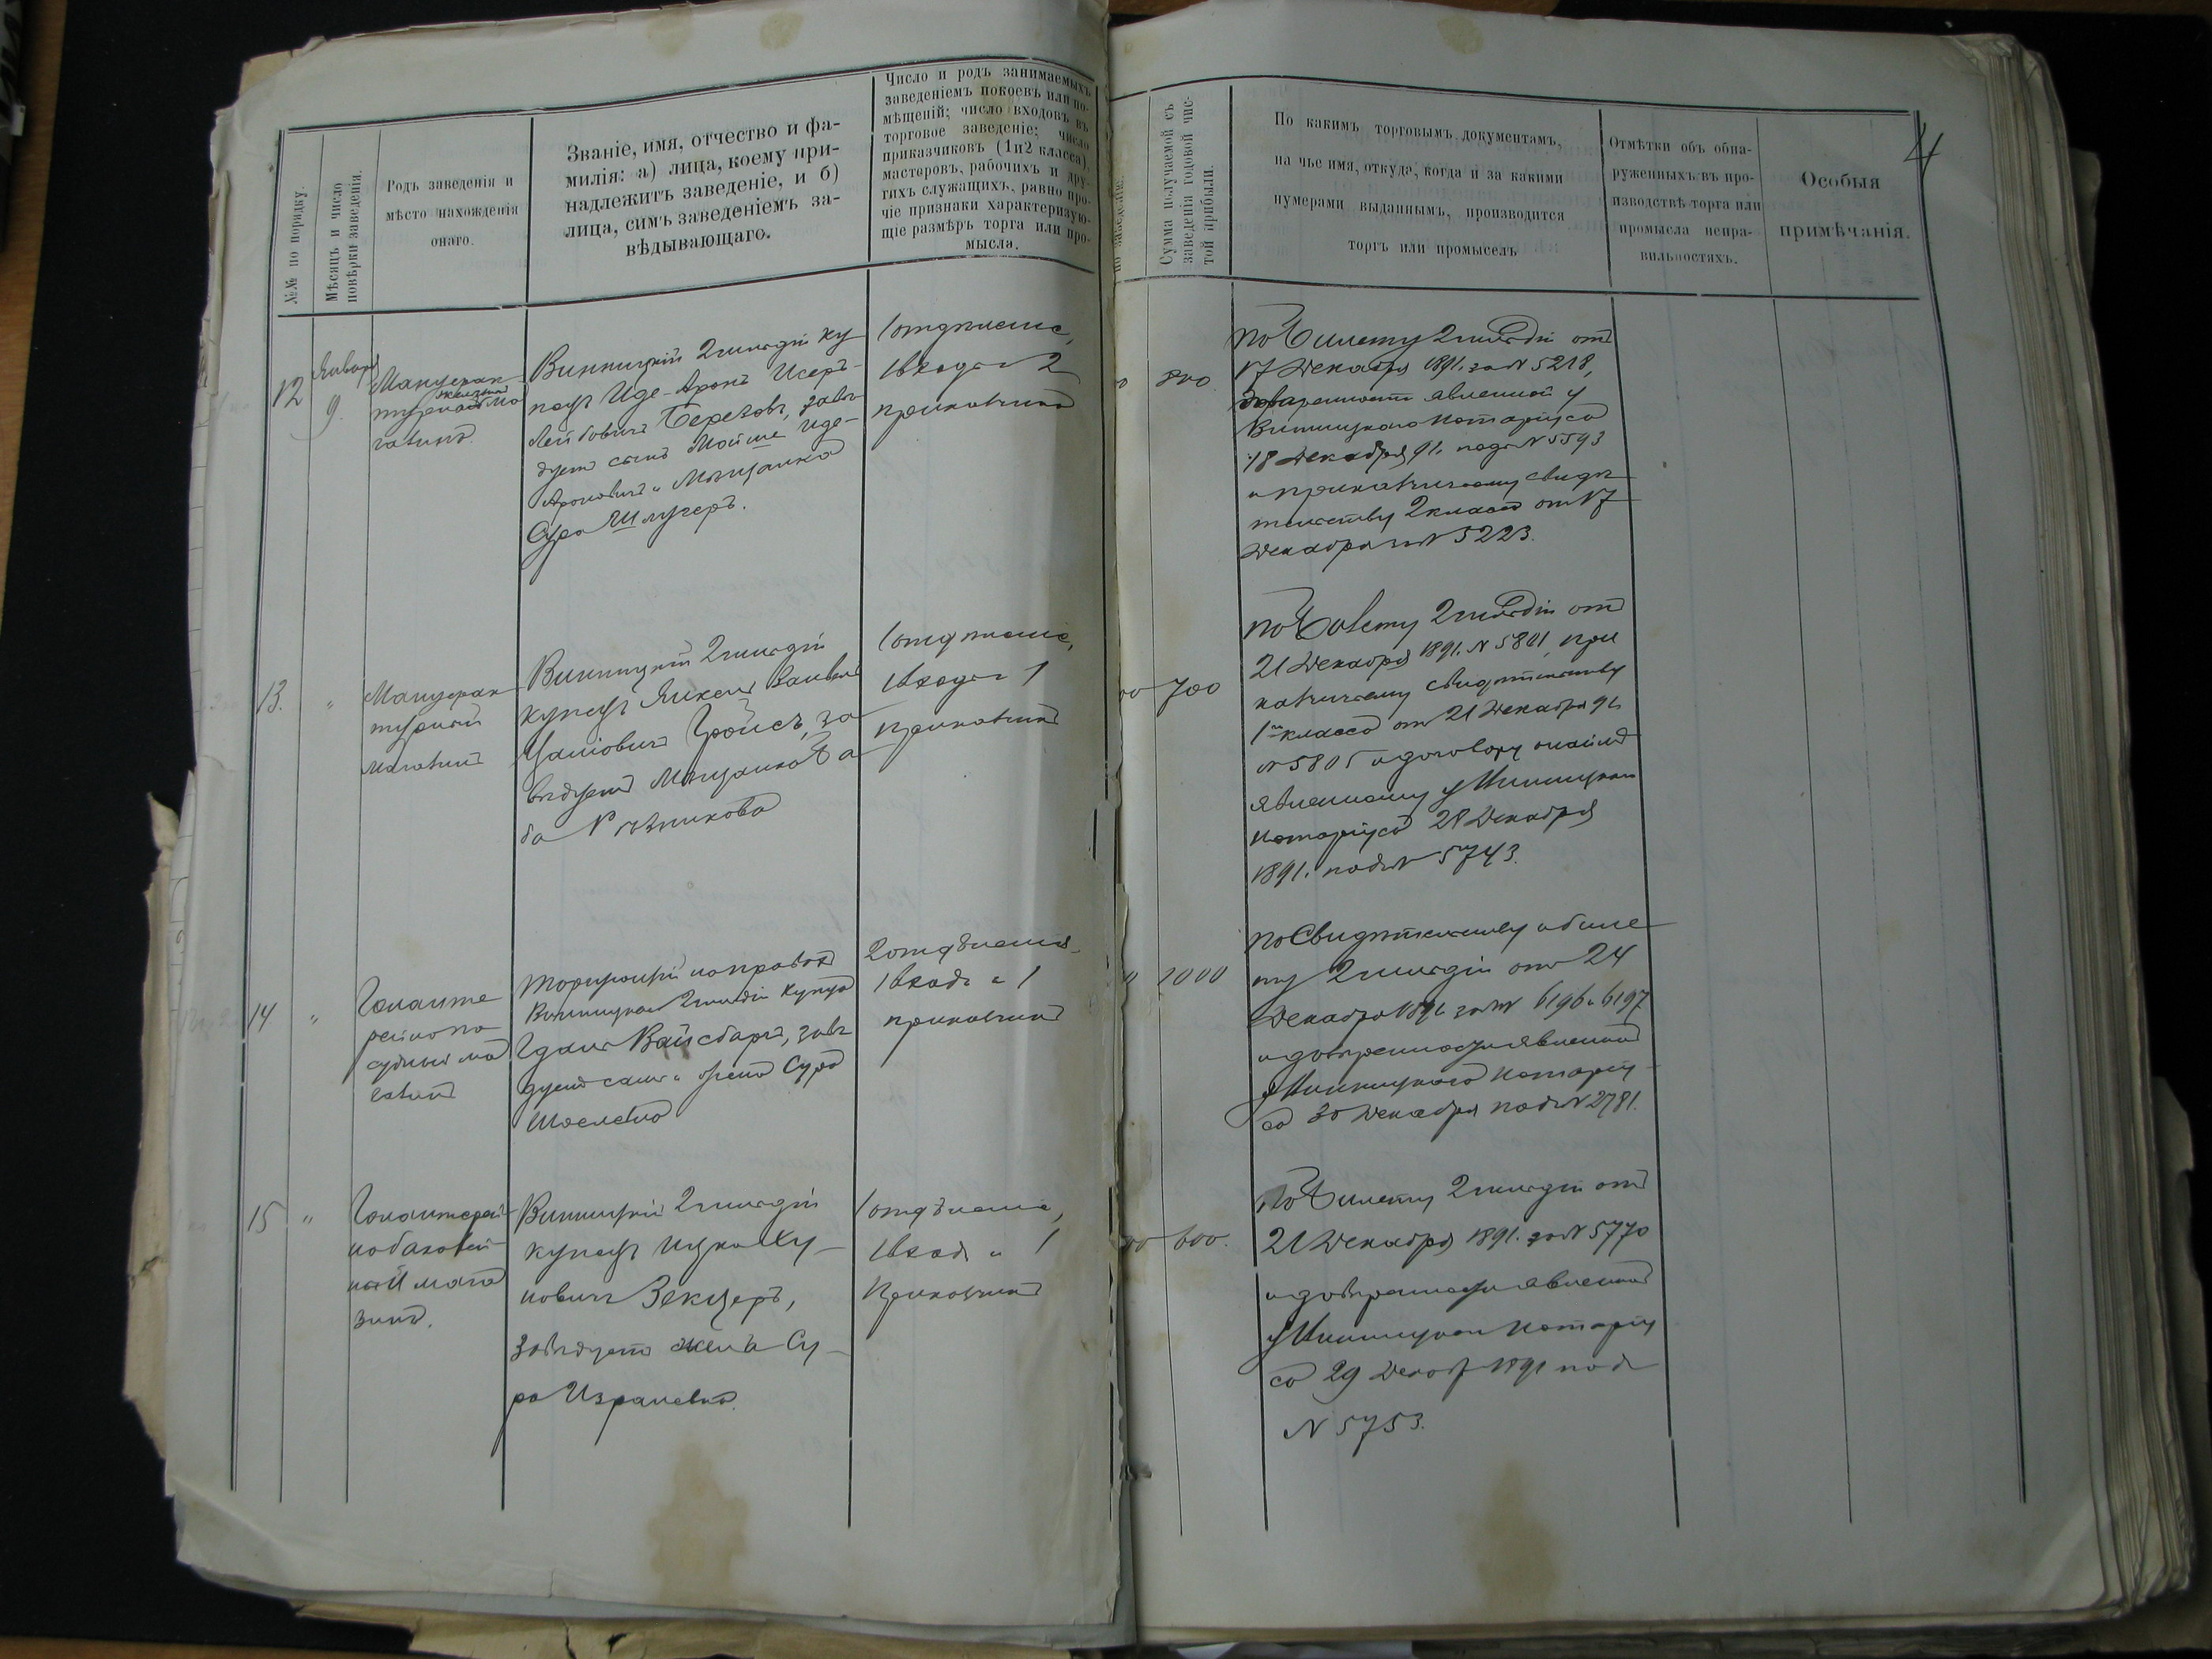 №№ по порядку.
Мѣсяцъ и число
повѣрки заведенія.
Родъ заведенія и
мѣсто нахожденія
онаго.
Званіе, имя, отчество и фа-
милія: а) лица, коему при-
надлежитъ заведеніе, и б)
лица, симъ заведеніемъ за-
вѣдывающаго.
Число и родъ занимаемыхъ
заведеніемъ покоевъ или по-
мѣщеній; число входовъ въ
торговое заведеніе; число
приказчиковъ (1 и 2 класса),
мастеровъ, рабочихъ и дру-
гихъ служащихъ, равно про-
чіе признаки характеризую-
щіе размѣръ торга или про-
мысла.
Сумма получаемой съ
заведенія годовой чис-
той прибыли.
По какимъ торговымъ документамъ,
на чье имя, откуда, когда и за какими
нумерами выданнымъ, производится
торгъ или промыселъ
Отмѣтки объ обна-
руженныхъ въ про-
изводствѣ торга или
промысла непра-
вильностяхъ.
Особыя
примѣчанія.
4
12
Января
9.
Мануфак
турный ма
газинъ.
Винницкій 2 гильдіи ку
пецъ Иде-Аронъ Исеръ-
Лейбовичъ Березовъ, завѣ
дуетъ сынъ Мойше Иде-
Ароновичъ и Мѣщанка
Сура Шлугеръ.
1 отдѣленіе,
1 входъ и 2
приказчика
800
по Билету 2 гильдіи отъ
17 Декабря 1891. за № 5218,
довѣренности явленной у
Винницкаго Нотаріуса
18 Декабря 91. подъ № 5593
и приказчичьему свидѣ
тельству 2 класса отъ 17
Декабря за № 5223.
13.
"
Мануфак
турный
магазинъ
Винницкій 2 гильдіи
купецъ Янкель
Гройсъ, за
вѣдуетъ Мѣщанка Ба
ба Рѣзникова
1 отдѣленіе,
1 входъ и 1
приказчикъ
700
по Билету 2 гильдіи отъ
21 Декабря 1891. № 5801, при
казчичьему свидѣтельству
1го класса отъ 21 Декабря 91.
№ 5805 и договору о наймѣ
явленному у Винницкаго
Нотаріуса 28 Декабря
1891. подъ № 5743.
14
"
Галанте
рейно по
судный ма
газинъ
Торгующій на правахъ
Винницкаго 2 гильдіи купца
Гдаль Вайсбаргъ, завѣ
дуетъ самъ и жена Сура
2 отдѣленія
1 входъ и 1
приказчикъ
1000
по Свидѣтельству и биле
ту 2 гильдіи отъ 24
Декабря 1891 за №№ 6196 и 6197
и довѣренности явленной
у Винницкаго Нотаріу-
са 30 Декабря подъ № 2781.
15
"
Галантерей
но бакалей
ный мага
зинъ.
Винницкій 2 гильдіи
купецъ Ицко Ху-
новичъ Зекцеръ,
завѣдуетъ жена Су-
ра Израилевна.
1 отдѣленіе,
1 входъ и 1
приказчикъ
600.
по Билету 2 гильдіи отъ
21 Декабря 1891. за № 5770
и довѣренности явленной
у Винницкаго Нотаріу
са 29 Декаб. 1891 подъ
№ 5753.